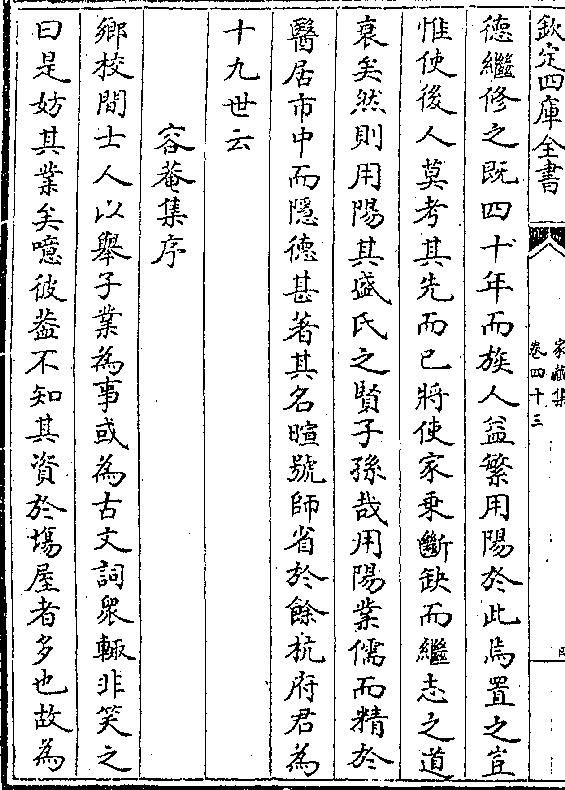 欽定四庫全書
家藏集
卷四十三
德繼修之既四十年而族人益繁用陽於此焉置之豈
惟使後人莫考其先而已將使家乗斷缺而繼志之道
衰矣然則用陽其盛氏之賢子孫哉用陽業儒而精於
醫居市中而隱德甚著其名暄號師省於餘杭府君為
十九世云
容菴集序
鄉校間士人以舉子業為事或為古文詞衆輙非笑之
曰是妨其業矣噫彼葢不知其資於塲屋者多也故為